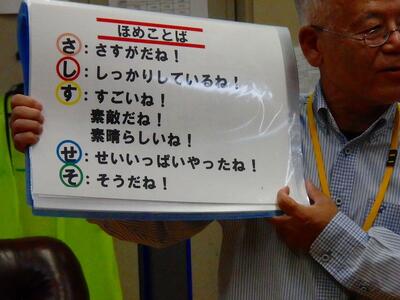 ほめことば
さ：さすがだね！
し：しっかりしているね！
す：すごいね！
素敵だね！
素晴らしいね！
せ：せいいっぱいやったね！
そ：そうだね！